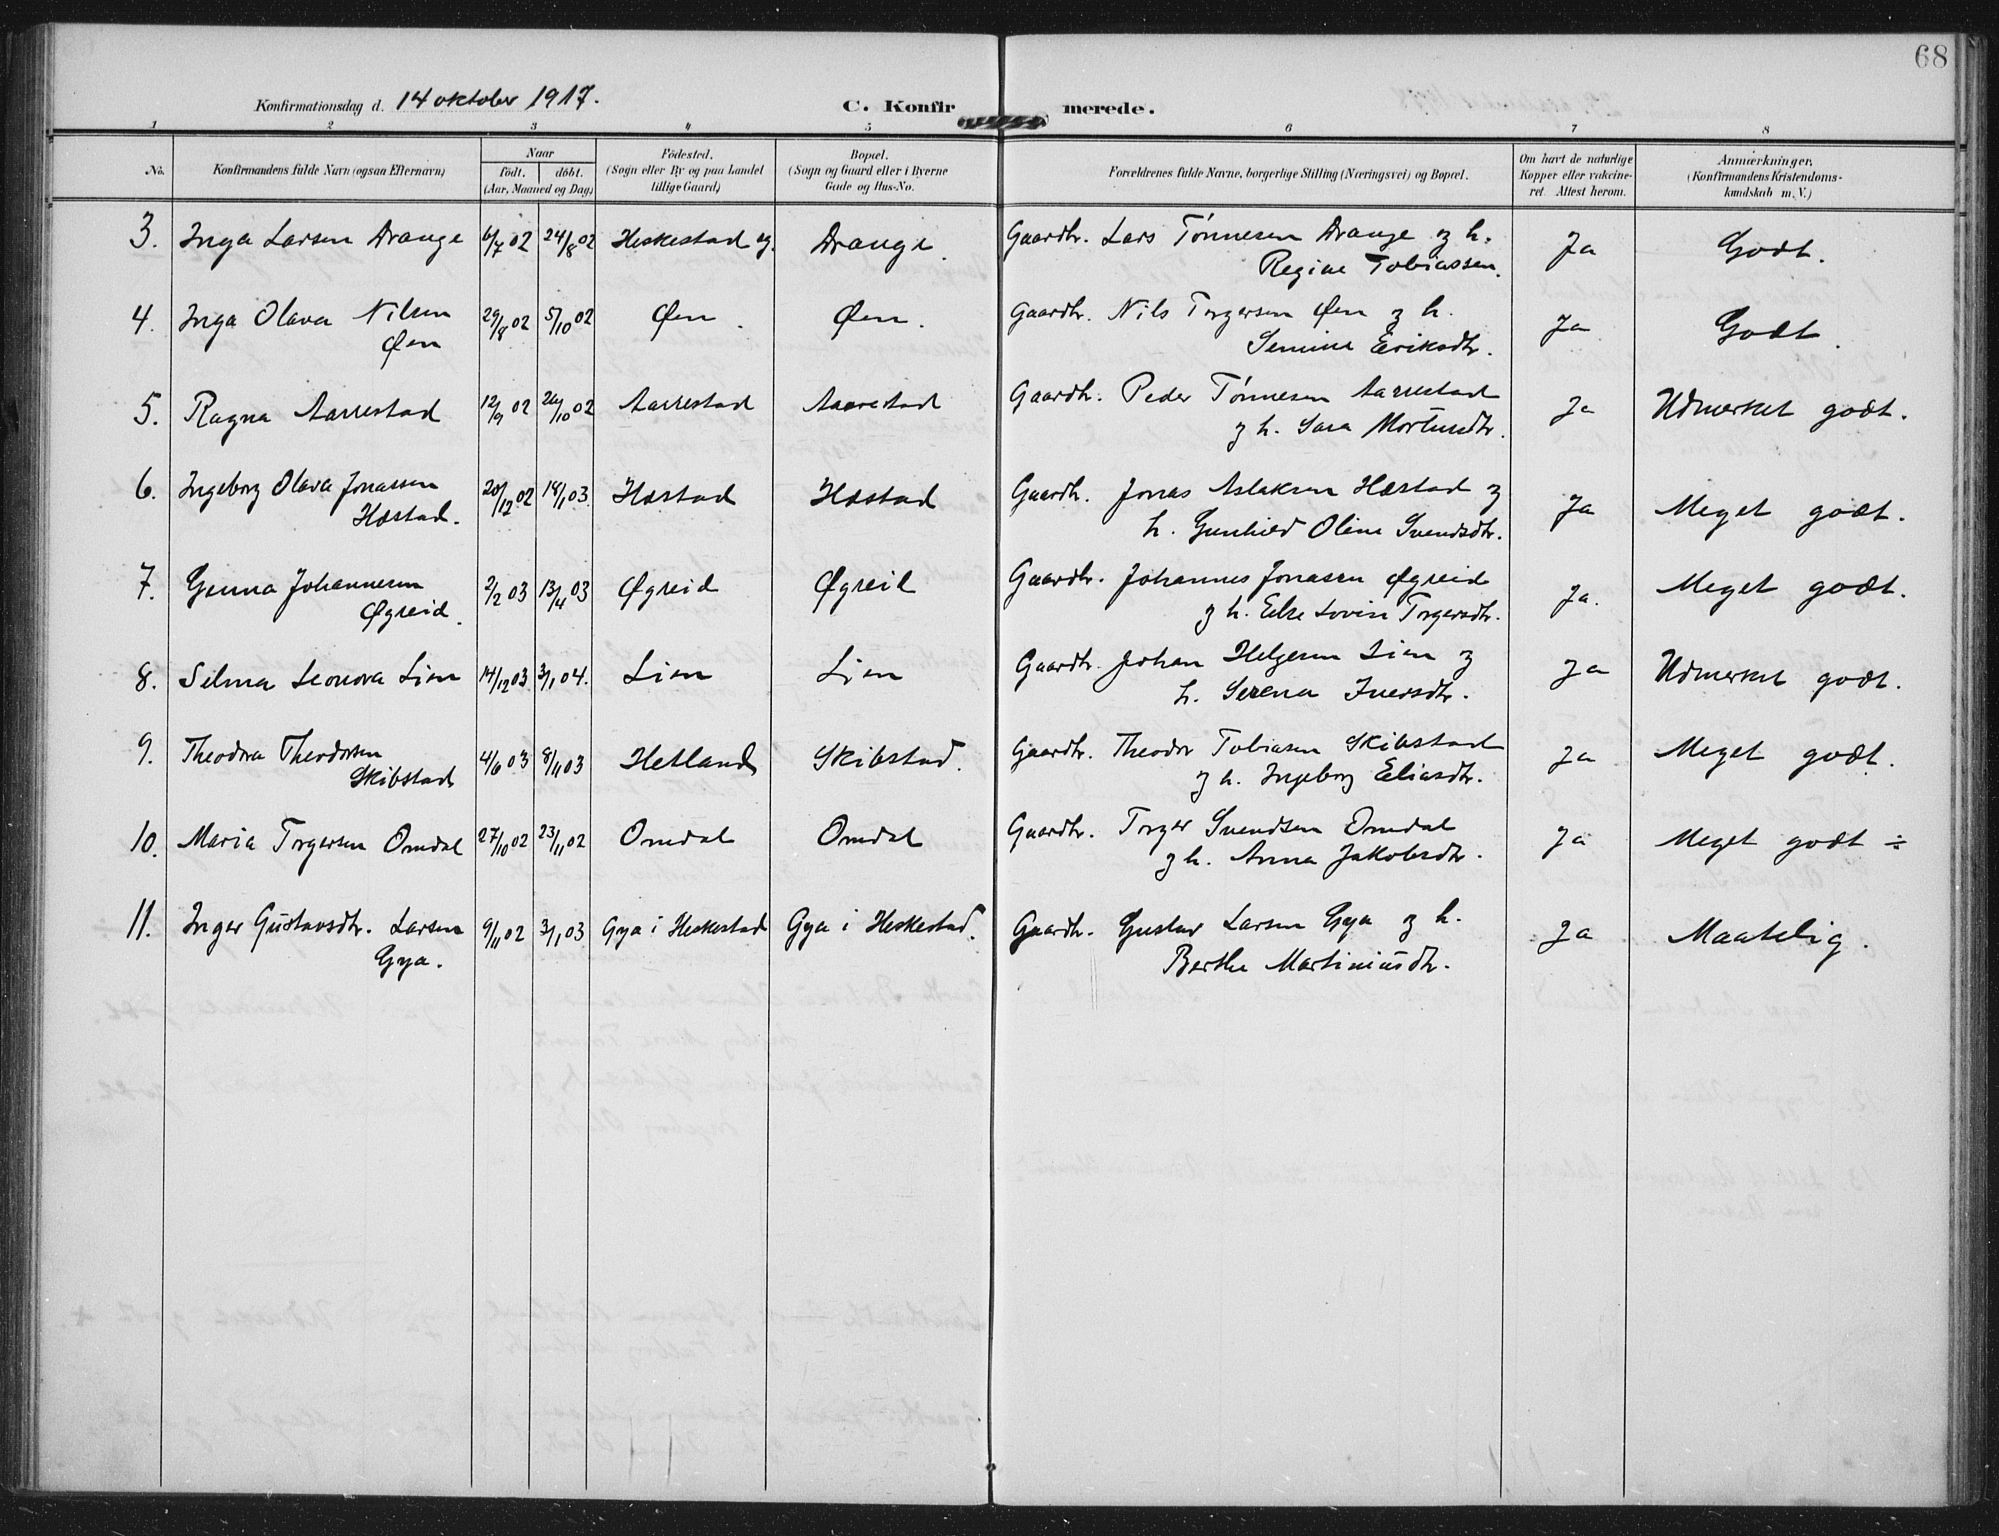 68
Konfirmationsdag d. 14 oktober 1917.
C. Konfirmerede.
1 2 3 4 5 6 7 8
No.
Konfirmandens fulde Navn (ogsaa Efternavn)
Naar
født. døbt.
(Aar, Maaned og Dag)
Fødested.
(Sogn eller By og paa Landet
tillige Gaard)
Bopæl.
(Sogn og Gaard eller i Byerne
Gade og Hus-No.
Forældrenes fulde Navne, borgerlige Stilling (Næringsvei) og Bopæl.
Om havt de naturlige
Kopper eller vakcine-
ret. Attest herom.
Anmærkninger.
(Konfirmandens Kristendoms-
kundskab m. V.)
3. Inga Larsen Drange 6/7 02 24/8 02 Heskestad sg. Drange. Gaardbr. Lars Tønnesen Drange og h. Ja Godt.
Regine Tobiassen.
4. Inga Olava Nilsen 29/8 02 5/10 02 Øen Øen. Gaardbr. Nils Torgersen Øen og h. Ja Godt.
Øen Semine Eriksdtr.
5. Ragna Aarrestad 12/9 02 26/10 02 Aarrestad Aarrestad Gaardbr. Peder Tønnesen Aarrestad Ja Udmerket godt.
og h. Sara Mortensdtr.
6. Ingeborg Olava Jonassen 20/12 02 18/1 03. Hæstad Hæstad Gaardbr. Jonas Aslaksen Hæstad og Ja Meget godt.
Hæstad. h. Gunhild Oline Svendsdtr.
7. Genna Johannesen 2/2 03 13/4 03 Øgreid Øgreid Gaardbr. Johannes Jonasen Øgreid Ja. Meget godt.
Øgreid. og h. Else Lovise Torgersdtr.
8. Selma Leonora Lien 14/12 03 3/1 04. Lien Lien Gaardbr. Johan Helgesen Lien og Ja Udmerket godt.
h. Serena Iversdtr.
9. Theodora Theodorsen 4/6 03 8/11 03 Hetland Skibstad. Gaardbr. Theodor Tobiasen Skibstad Ja Meget godt.
Skibstad og h. Ingeborg Eliasdtr.
10. Maria Torgersen Omdal 27/10 02 23/11 02 Omdal Omdal Gaardbr. Torger Svendsen Omdal Ja Meget godt ÷
og h. Anna Jakobsdtr.
11. Inger Gustavsdtr. Larsen 9/11 02 3/1 03 Gya i Heskestad Gya i Heskestad. Gaardbr. Gustav Larsen Gya og h. Ja Maatelig.
Gya. Berthe Martiniusdtr.